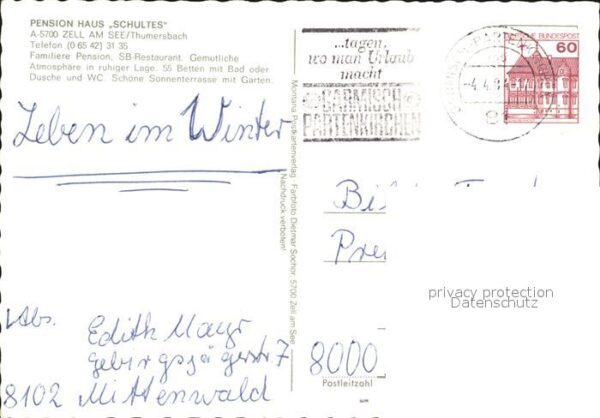 PENSION HAUS „SCHULTES"
A-5700 ZELL AM SEE/Thumersbach
Telefon (0 65 42) 31 35
Familiere Pension, SB-Restaurant. Gemütliche
Atmosphäre in ruhiger Lage. 55 Betten mit Bad oder
Dusche und WC. Schöne Sonnenterrasse mit Garten.
...tagen,
wo man Urlaub
macht
GARMISCH-
PARTENKIRCHEN
DEUTSCHE BUNDESPOST
60
Leben im Winter
Postkartenverlag · Farbfoto Dietmar Sochor, 5700 Zell am See
Nachdruck verboten!
Bi
Pre
privacy protection
Datenschutz
Abs.
Edith Mayr
Gebirgsjägerstr 7
8102 Mittenwald
8000
Postleitzahl